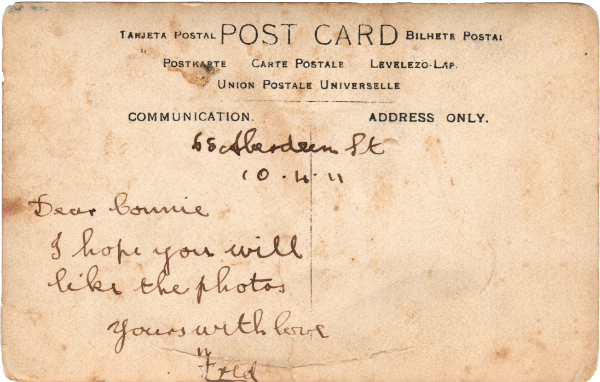 TARJETA POSTAL POST CARD BILHETE POSTAL
POSTKARTE CARTE POSTALE LEVELEZÖ-LAP.
UNION POSTALE UNIVERSELLE
COMMUNICATION. ADDRESS ONLY.
65 Aberdeen St
10.4.11
Dear Connie
I hope you will
like the photos
Yours with love
Fred